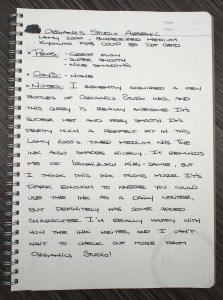 Organics Studio Arsenic
Lamy 2000, Binderized Medium
Kyokuto FOB COOP B5 Dot Grid
• Pros: - Great flow
- Super smooth
- Nice shading
• Cons: - None
• Notes: I recently acquired a few
bottles of Organics Studio ink, and
this grey is really awesome. It's
super wet and very smooth. It's
pretty much a perfect fit in this
Lamy 2000's tuned medium nib. The
ink also shades nicely. It reminds
me of Iroshizuku Kiri-same, but
I think this ink flows more. It's
dark enough to where you could
use the ink as a daily writer,
but definitely has some added
character. I'm really happy with
how the ink writes, and I can't
wait to check out more from
Organics Studio!